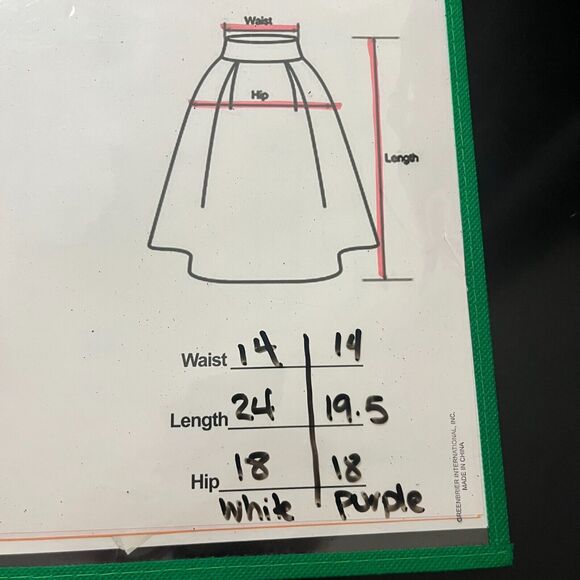 Waist
Hip
Length
Waist 14 14
Length 24 19.5
Hip 18 18
white purple
GREENBRIER INTERNATIONAL, INC.
MADE IN CHINA